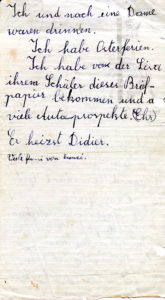 Ich und noch eine Dame
waren drinnen.
Ich habe Osterferien.
Ich habe von der Lisa
ihrem Schäfer dieses Brief-
papier bekommen und a
viele Autoprospekte.
Er heizst Didier.
Viele
von